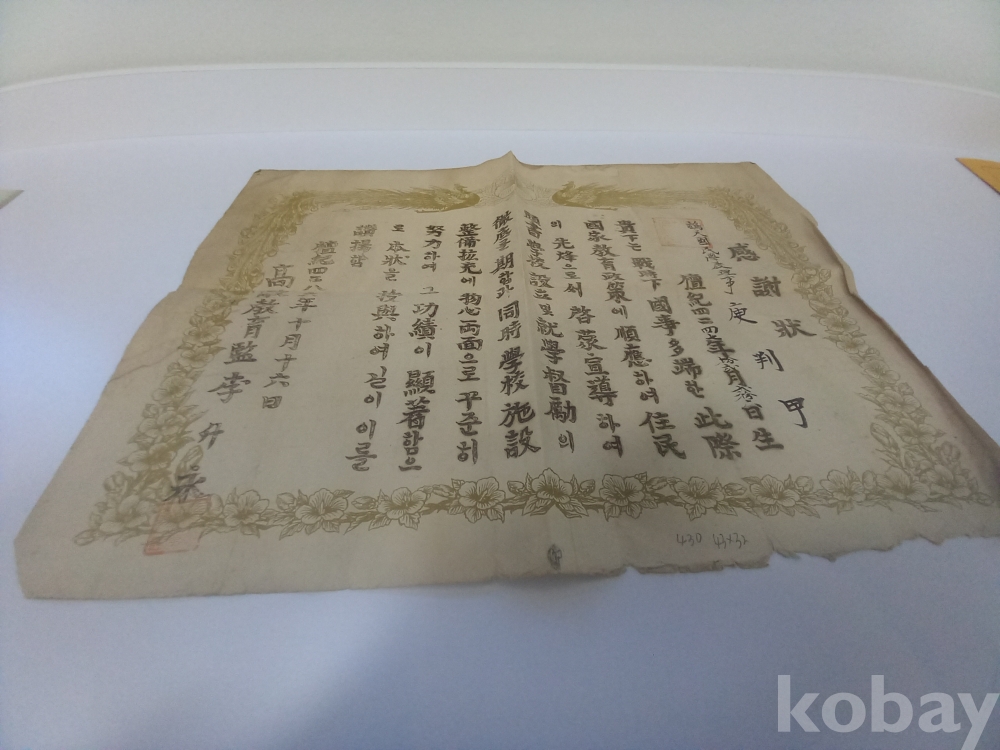 感謝狀
庚 判 甲
檀紀四二四 年 月 日生
貴下는 戰時下 國事多端한 此際
國家敎育政策에 順應하여 住民
의 先烽으로서 啓蒙宣導하여
學校設立 및 就學督勸의
徹底를 期함과 同時 學校施設
整備拡充에 物心両面으로 꾸준히
努力하여 그 功績이 顯著함으
로 玆狀을 授與하여 길이 이를
讃揚함
檀紀四二八 年 十月 十六日
高 敎育監 李
430 43x32
kobay